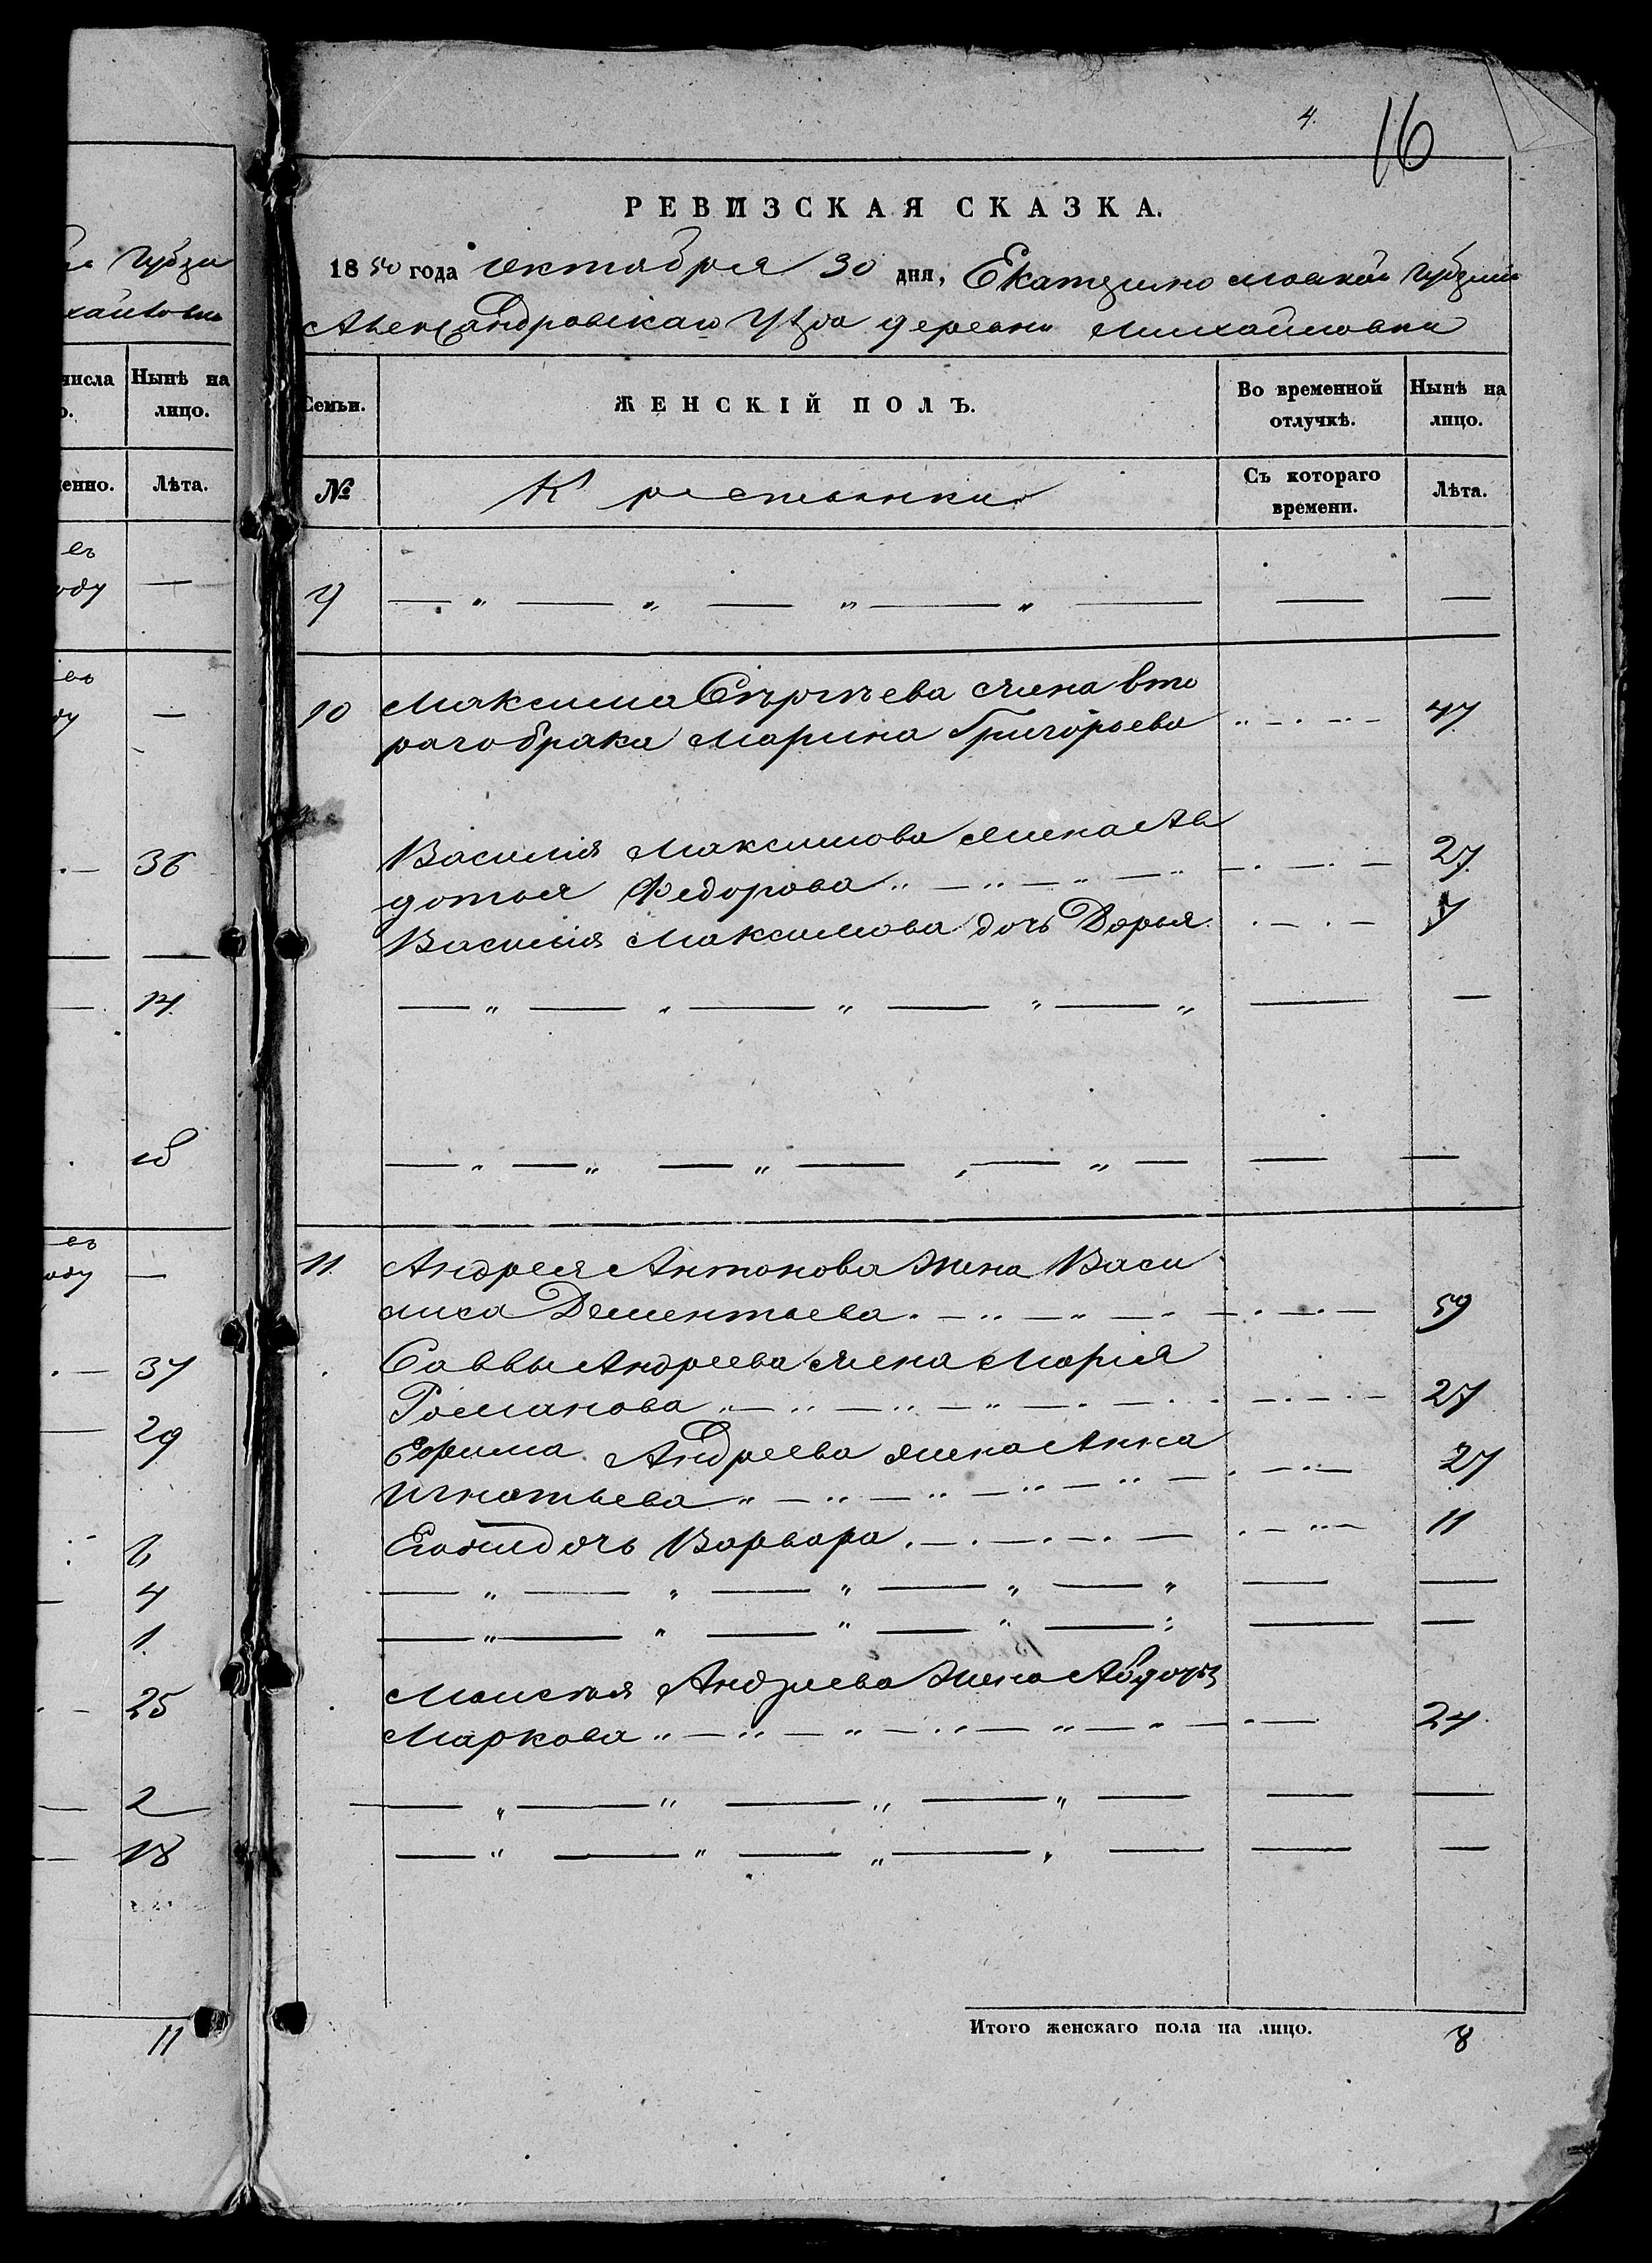 губер
хайловки
числа
Нынѣ на
лицо.
Лѣта.
ъ
оду
36
14
18
оду
37
29
6
4
1
25
2
18
11
4.
16
РЕВИЗСКАЯ СКАЗКА.
1850 года Октября 30 дня, Екатеринославской губерніи
Александровскаго уѣзда деревни Михайловки
Семьи.
ЖЕНСКІЙ ПОЛЪ.
Во временной
отлучкѣ.
Нынѣ на
лицо.
№
Крестьянки
Съ котораго
времени.
Лѣта.
9
10 Максима Сергѣева жена вто
раго брака Марина Григорьева 47
Василія Максимова жена Ав
дотья Федорова 27
Василія Максимова дочь Дарья 7
11 Андрея Антонова жена Васи
лиса Дементьева 59
Саввы Андреева жена Марія
Романова 27
Ефима Андреева жена Анна
Игнатьева 27
Его дочь Варвара 11
Моисея Андреева жена Авдотья
Маркова 24
Итого женскаго пола на лицо. 8